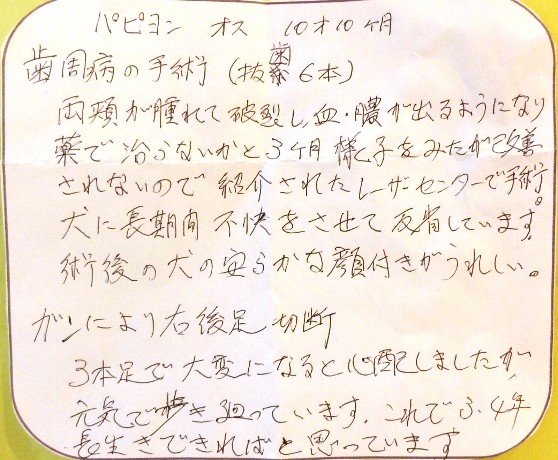 パピヨン オス 10才10ヶ月
歯周病の手術(抜歯6本)
両頬が腫れて破裂し、血・膿が出るようになり
薬で治らないかと3ケ月様子をみたが改善
されないので紹介されたレーザーセンターで手術。
犬に長期間不快をさせて反省しています。
術後の犬の安らかな顔付きがうれしい。
ガンにより右後足切断
3本足で大変になると心配しましたが
元気で歩き廻っています。これで3、4年
長生きできればと思っています